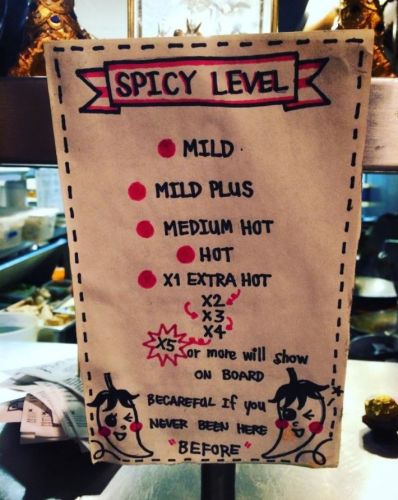 SPICY LEVEL
MILD
MILD PLUS
MEDIUM HOT
HOT
X1 EXTRA HOT
X2
X3
X4
X5 or more will show
ON BOARD
BECAREFUL If you
NEVER BEEN HERE
"BEFORE"